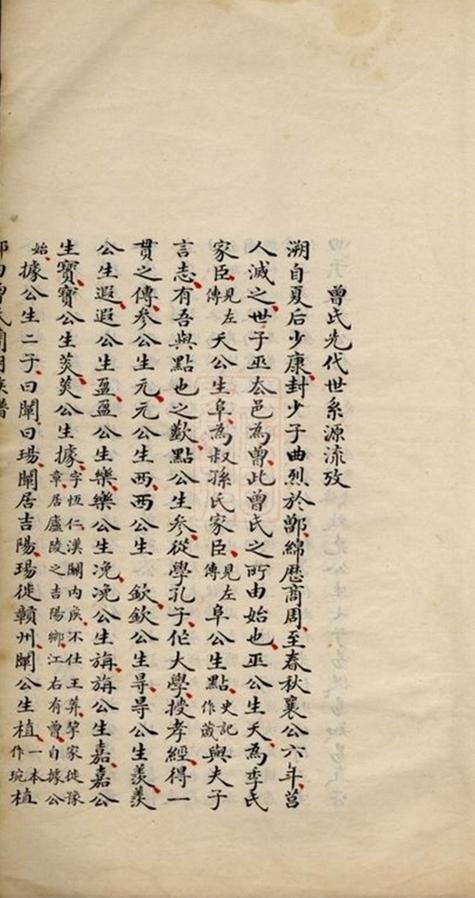 曾氏先代世系源流攷
溯自夏后少康封少子曲烈於鄫綿歷商周至春秋襄公六年莒
人滅之世子巫去邑為曾此曾氏之所由始也巫公生夭為季氏
家臣見左傳夭公生阜為叔孫氏家臣見左傳阜公生點史記作蒧與夫子
言志有吾與點也之歎點公生參從學孔子作大學授孝經得一
貫之傳參公生元元公生西西公生 欽欽公生尋尋公生羨羨
公生遐遐公生盈盈公生樂樂公生浼浼公生旃旃公生嘉嘉公
生寶寶公生炎炎公生據字恆仁漢關內侯不仕王莽挈家徙豫章居廬陵之吉陽鄉江右有曾自據公
始據公生二子曰闡曰瑒闡居吉陽瑒徙贛州闡公生植一本作琬植